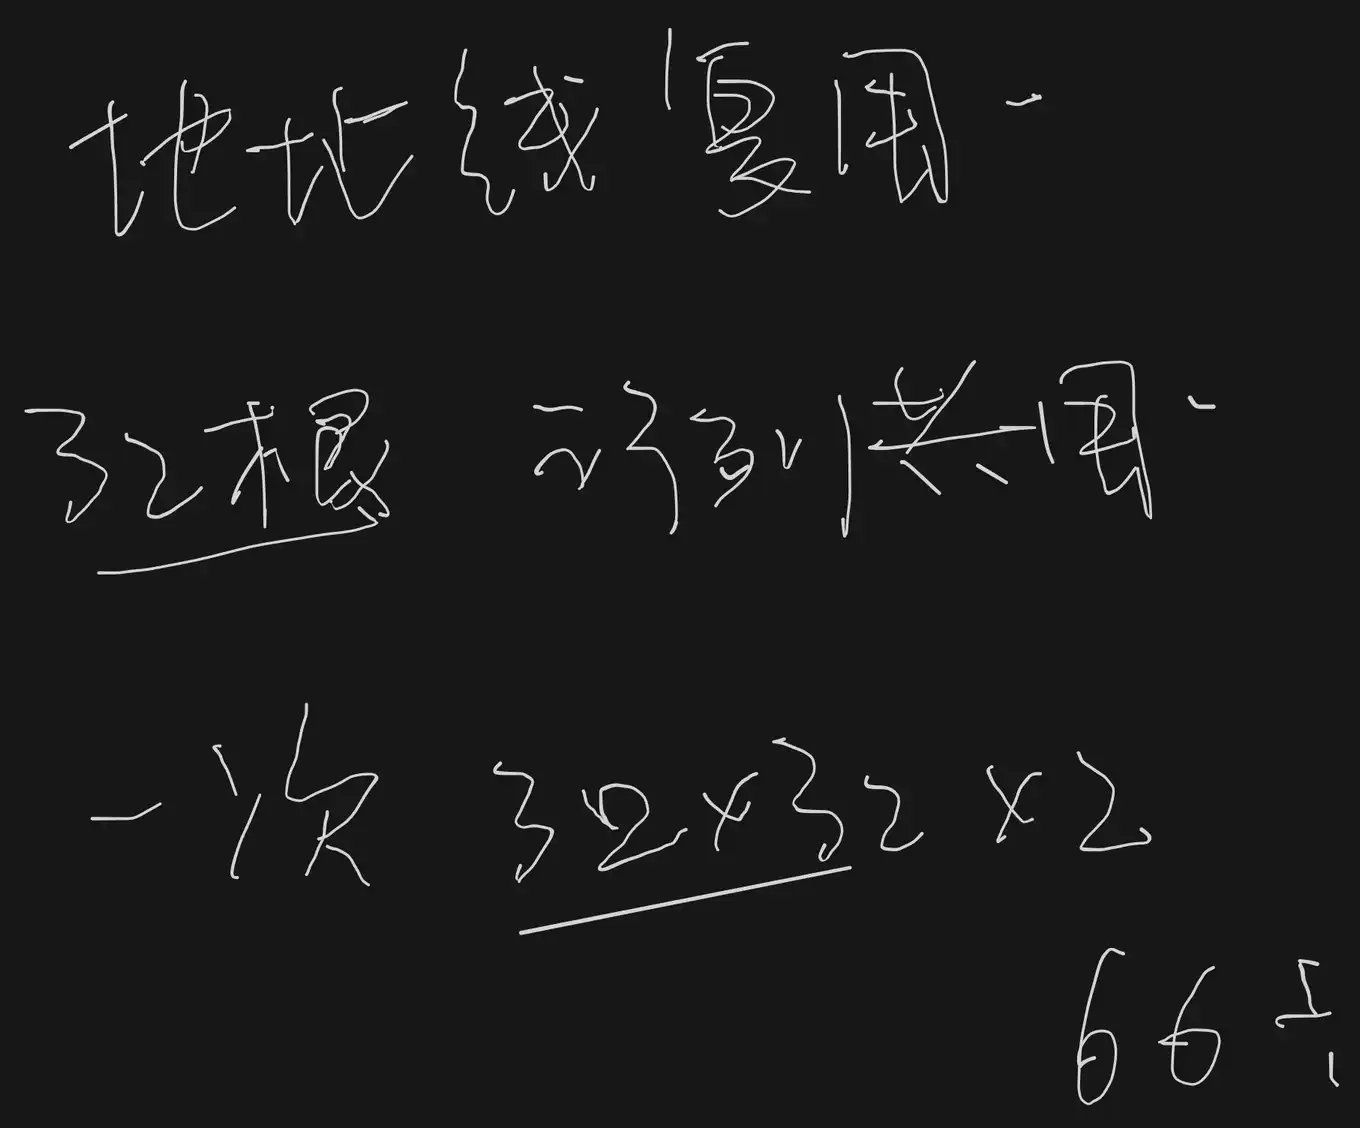 地址线复用
32根 行列共用
一次 32×32×2
66